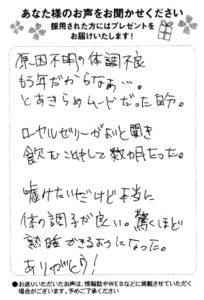 あなた様のお声をお聞かせください
採用された方にはプレゼントを
お届けいたします!
原因不明の体調不良
もう年だからなぁ…。
とあきらめムードだった時。
ローヤルゼリーがよいと聞き
飲むことにして数ヵ月たった。
嘘みたいだけど本当に
体の調子が良い。驚くほど
熟睡できるようになった。
ありがとう!
●お送りいただいたお声は、情報誌やWEBなどに掲載させていただく
場合がございます。予めご了承ください